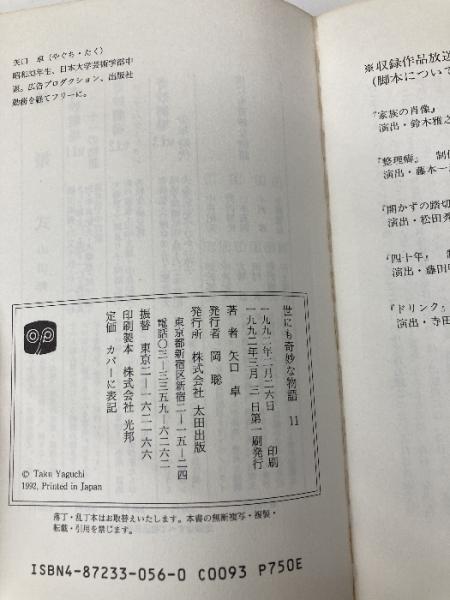 矢口 卓（やぐち・たく）
昭和33年生、日本大学芸術学部中
退。広告プロダクション、出版社
勤務を経てフリーに。
世にも奇妙な物語 11
一九九二年二月二六日 印刷
一九九二年三月 三日第一刷発行
著 者 矢口 卓
発行者 岡 聡
発行所 株式会社 太田出版
東京都新宿区新宿二―一五―二四
電話〇三―三三五九―六二六二
振替 東京二―一六二一六六
印刷製本 株式会社 光邦
定価 カバーに表記
© Taku Yaguchi
1992, Printed in Japan
落丁・乱丁本はお取替えいたします。本書の無断複写・複製・
転載・引用を禁じます。
ISBN4-87233-056-0 C0093 P750E
※収録作品放送
（脚本について
『家族の肖像』
演出・鈴木雅之
『整理癖』 制作
演出・藤本一
『開かずの踏切
演出・松田秀
『四十年』 制
演出・藤田明
『ドリンク』
演出・寺田